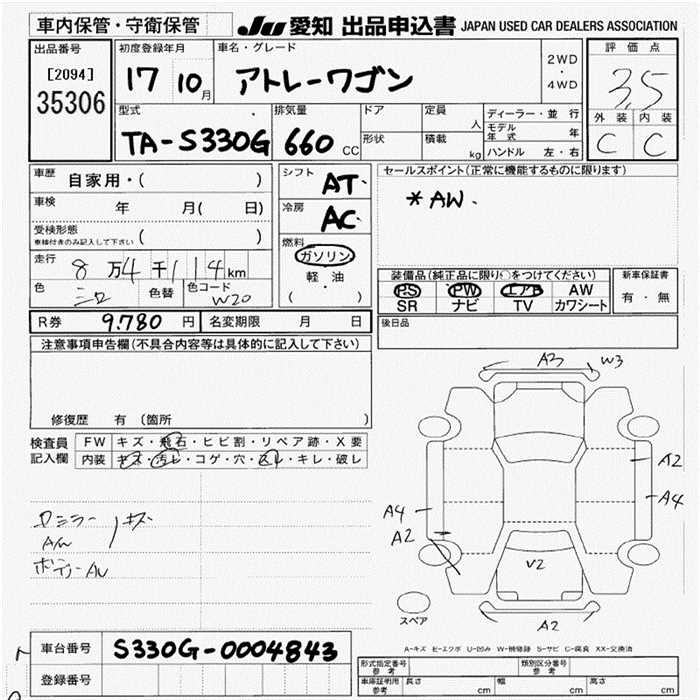 車内保管・守衛保管
JU 愛知 出品申込書 JAPAN USED CAR DEALERS ASSOCIATION
出品番号
[2094]
35306
初度登録年月
17 10月
車名・グレード
アトレーワゴン
2WD
・
4WD
評価点
3.5
外装 内装
C C
型式
TA-S330G
排気量
660 CC
ドア
形状
定員
人
積載
kg
ディーラー・並行
モデル年式 年
ハンドル 左・右
車歴 自家用・( )
車検 年 月( 日)
受検形態
車検付きのみ記入して下さい ( )
走行 8万4千114km
色 シロ 色替 色コード W20
シフト AT.
冷房 AC
燃料
ガソリン
軽・油
( )
セールスポイント(正常に機能するものに限ります)
* AW.
装備品(純正品に限り○をつけてください)
PS PW エアB AW
SR ナビ TV カワシート
新車保証書
有・無
R券 9.780 円 名変期限 月 日
後日品
注意事項申告欄(不具合内容等は具体的に記入して下さい)
修復歴 有 (箇所 )
検査員記入欄
FW キズ・飛石・ヒビ割・リペア跡・X要
内装 キズ・汚レ・コゲ・穴・スレ・キレ・破レ
キズ
AW
A3 W3
A2
A4
A4
A2
V2
A2
スペア
A-キズ E-エクボ U-凹み W-補修跡 S-サビ C-腐食 XX-交換済
車台番号 S330G-0004843
登録番号
形式指定番号 参考
類別区分番号 参考
車庫証明用 参考 長さ cm 幅 cm 高さ cm